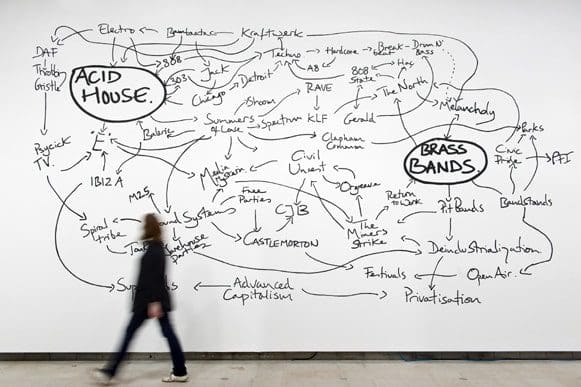 Electro
Bambaataa
Kraftwerk
DAF
Throbbing
Gristle
ACID
HOUSE.
808
303
Jack
Chicago
Detroit
Techno
Hardcore
Break-
beat
Drum N'
Bass
A8
808
State
Hac
The North
Melancholy
Shoom
RAVE
Summers
of Love
Spectrum
KLF
Gerald
Clapham
Common
BRASS
BANDS.
Parks
Civic
Pride
PFI
Psycick
TV.
E
Balaric
IBIZA
Media
Hysteria
Civil
Unrest
Orgreave
Return
to Work
Pit Bands
Bandstands
M25
Free
Parties
CJB
The
Miners
Strike
Spiral
tribe
Sound Systems
Warehouse
Parties
CASTLEMORTON
Deindustrialization
Festivals
Open Air.
Advanced
Capitalism
Privatisation